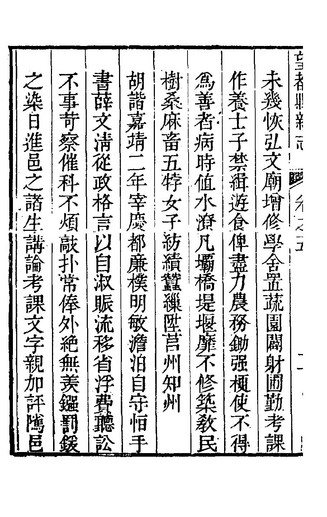 望都縣新志 卷之五
未幾恢弘文廟增修學舍置蔬園闢射圃勤考課
作養士子禁緝遊食俾盡力農務鋤强梗使不得
爲善者病時值水潦凡壩橋堤堰靡不修築敎民
樹桑麻畜五牸女子紡績蠶繅陞莒州知州
胡諧嘉靖二年宰慶都廉樸明敏澹泊自守恒手
書薛文淸從政格言以自淑賑流移省浮費聽訟
不事苛察催科不煩敲扑常俸外絶無羨鏹罰鍰
之染日進邑之諸生講論考課文字親加評隲邑